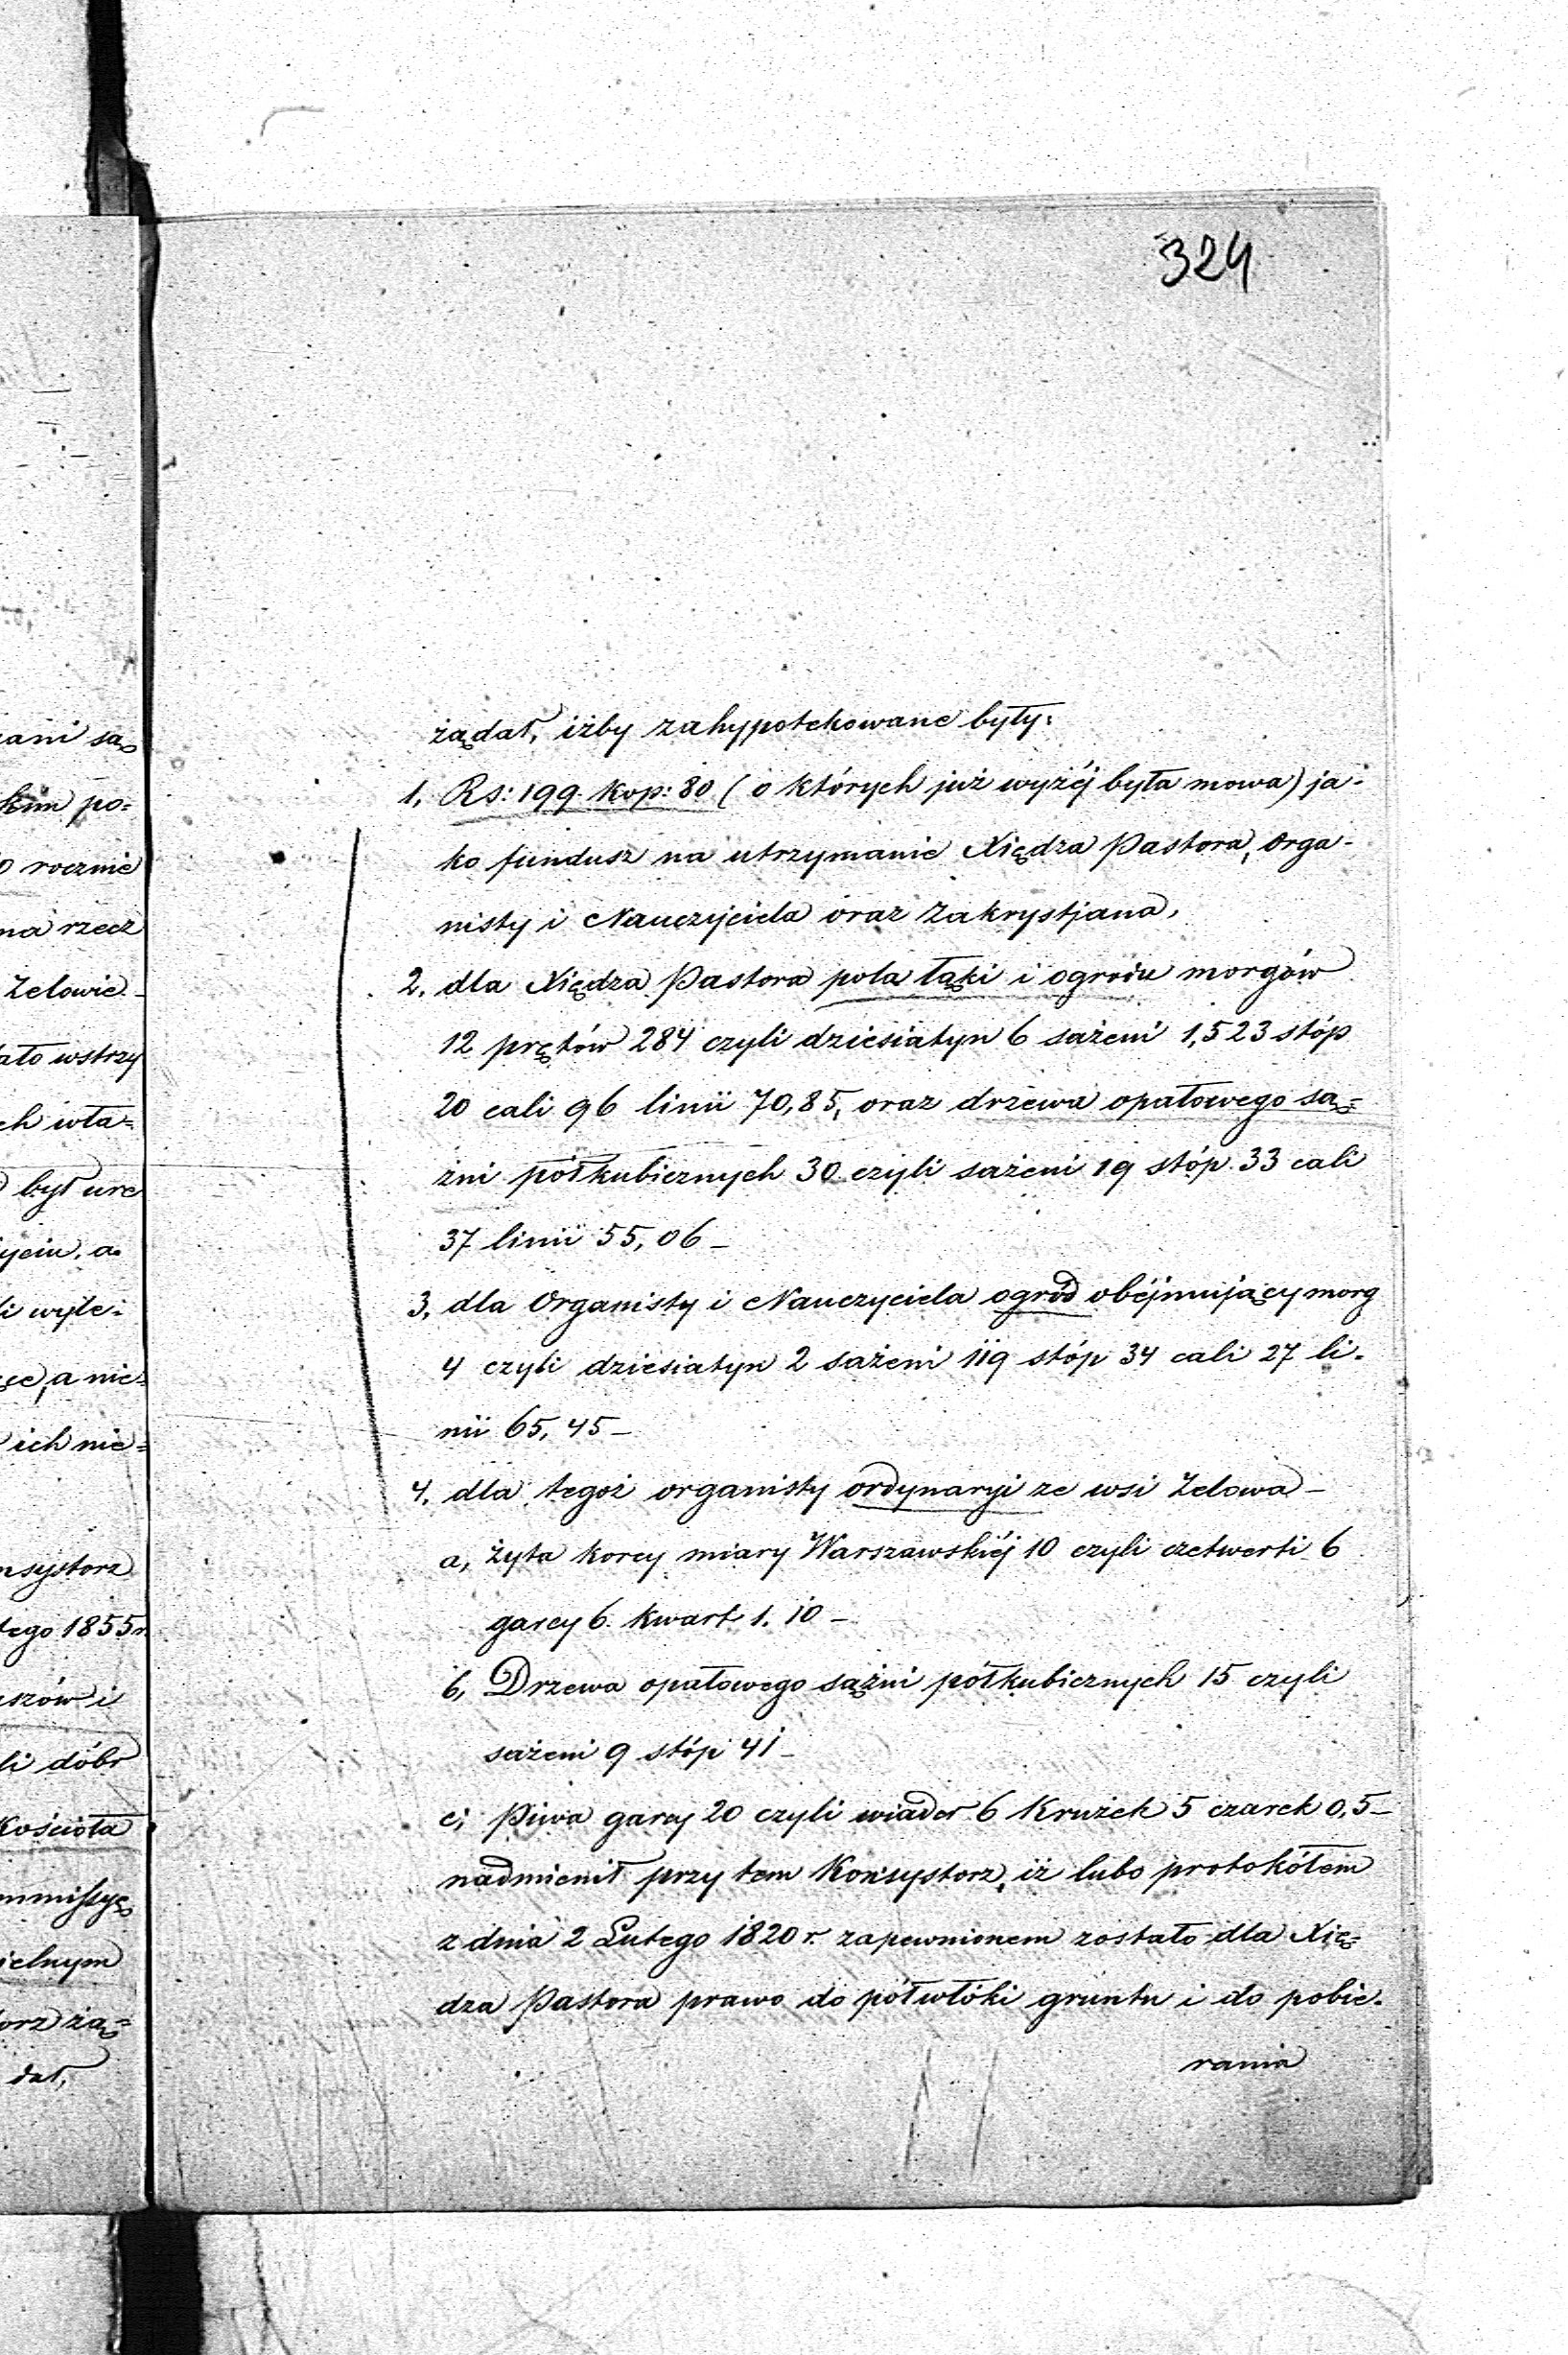 324
zani są
kim po=
rocznie
na rzecz
Zelowie
ało wstrzy
ch wła=
był urc
yciu, a
li wyle=
ce, a nie=
ich nie=
nsystorz
tego 1855 r.
uszów i
li dóbr
Kościoła
mmissyę
ielnym
orz żą=
dał,
żądał, iżby zahypotekowane były:
1, Rs: 199. kop: 80 (o których już wyżéj była mowa) ja=
ko fundusz na utrzymanie Xiędza Pastora, Orga-
nisty i Nauczyciela oraz Zakrystjana,
2. dla Xiędza Pastora pola łąki i ogrodu morgów
12 prętów 284 czyli dziesiatyn 6 sażeni 1,523 stóp
20 cali 96 linii 70,85, oraz drzewa opałowego są=
żni półkubicznych 30. czyli sażeni 19 stóp 33 cali
37 linii 55,06 _
3, dla Organisty i Nauczyciela ogród obéjmujący morg
4 czyli dziesiatyn 2 sażeni 119 stóp 34 cali 27 li-
nii 65,45 _
4. dla tegoż organisty ordynaryi ze wsi Zelowa _
a, żyta korcy miary Warszawskiéj 10 czyli czetwerti 6
garcy 6. kwart 1. 10 _
b, Drzewa opałowego sążni półkubicznych 15 czyli
sażeni 9 stóp 41 _
c, Piwa garcy 20 czyli wiader 6 Krużek 5 czarek 0,5 _
nadmienił przy tem Konsystorz, iż lubo protokółem
z dnia 2 Lutego 1820 r. zapewnionem zostało dla Xię=
dza Pastora prawo do półwłóki gruntu i do pobie-
rania